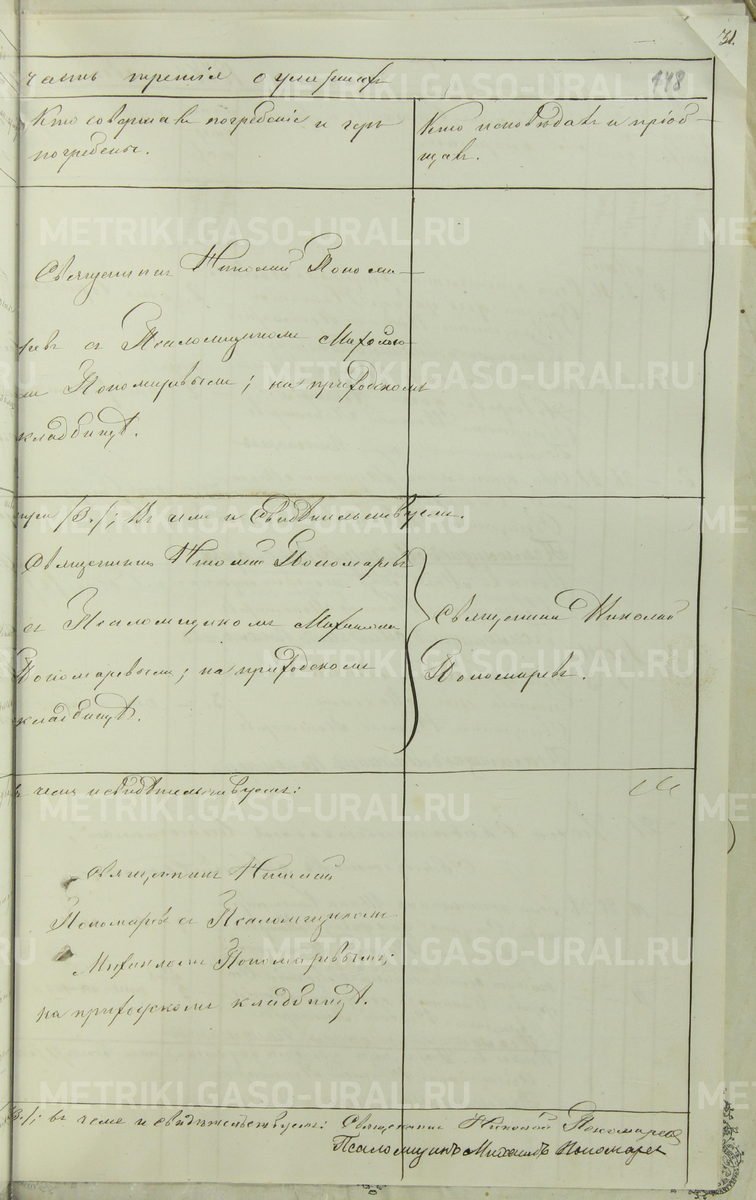 31.
148
часть третія о умершихъ
Кто совершалъ погребеніе и гдѣ
погребены.
Кто исповѣдалъ и пріоб-
щалъ.
METRIKI.GASO-URAL.RU
Священникъ Николай Понома-
ревъ съ Псаломщикомъ Михаило-
мъ Пономаревымъ; на приходскомъ
кладбищѣ.
три /3./; Въ чемъ и свидѣтельствуемъ.
Священникъ Николай Пономаревъ
съ Псаломщикомъ Михаиломъ
Пономаревымъ; на приходскомъ
кладбищѣ.
Священникъ Николай
Пономаревъ.
въ чемъ и свидѣтельствуемъ:
Священникъ Николай
Пономаревъ съ Псаломщикомъ
Михаиломъ Пономаревымъ;
на приходскомъ кладбищѣ.
/3./; въ чемъ и свидѣтельствуемъ: Священникъ Николай Пономаревъ
Псаломщикъ Михаилъ Пономаревъ